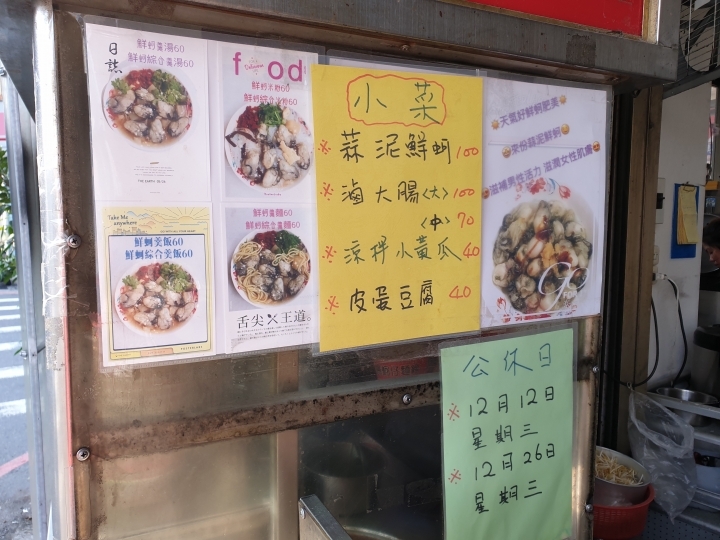 日誌
鮮蚵羹湯60
鮮蚵綜合羹湯60
food
鮮蚵米粉60
鮮蚵綜合米粉60
Take Me
anywhere
鮮蚵羹飯60
鮮蚵綜合羹飯60
鮮蚵羹麵60
鮮蚵綜合羹麵60
舌尖X王道。
小菜
※蒜泥鮮蚵100
※滷大腸<大>100
<中>70
※涼拌小黃瓜40
※皮蛋豆腐40
天氣好鮮蚵肥美
來份蒜泥鮮蚵
滋補男性活力 滋潤女性肌膚
公休日
※12月12日
星期三
※12月26日
星期三